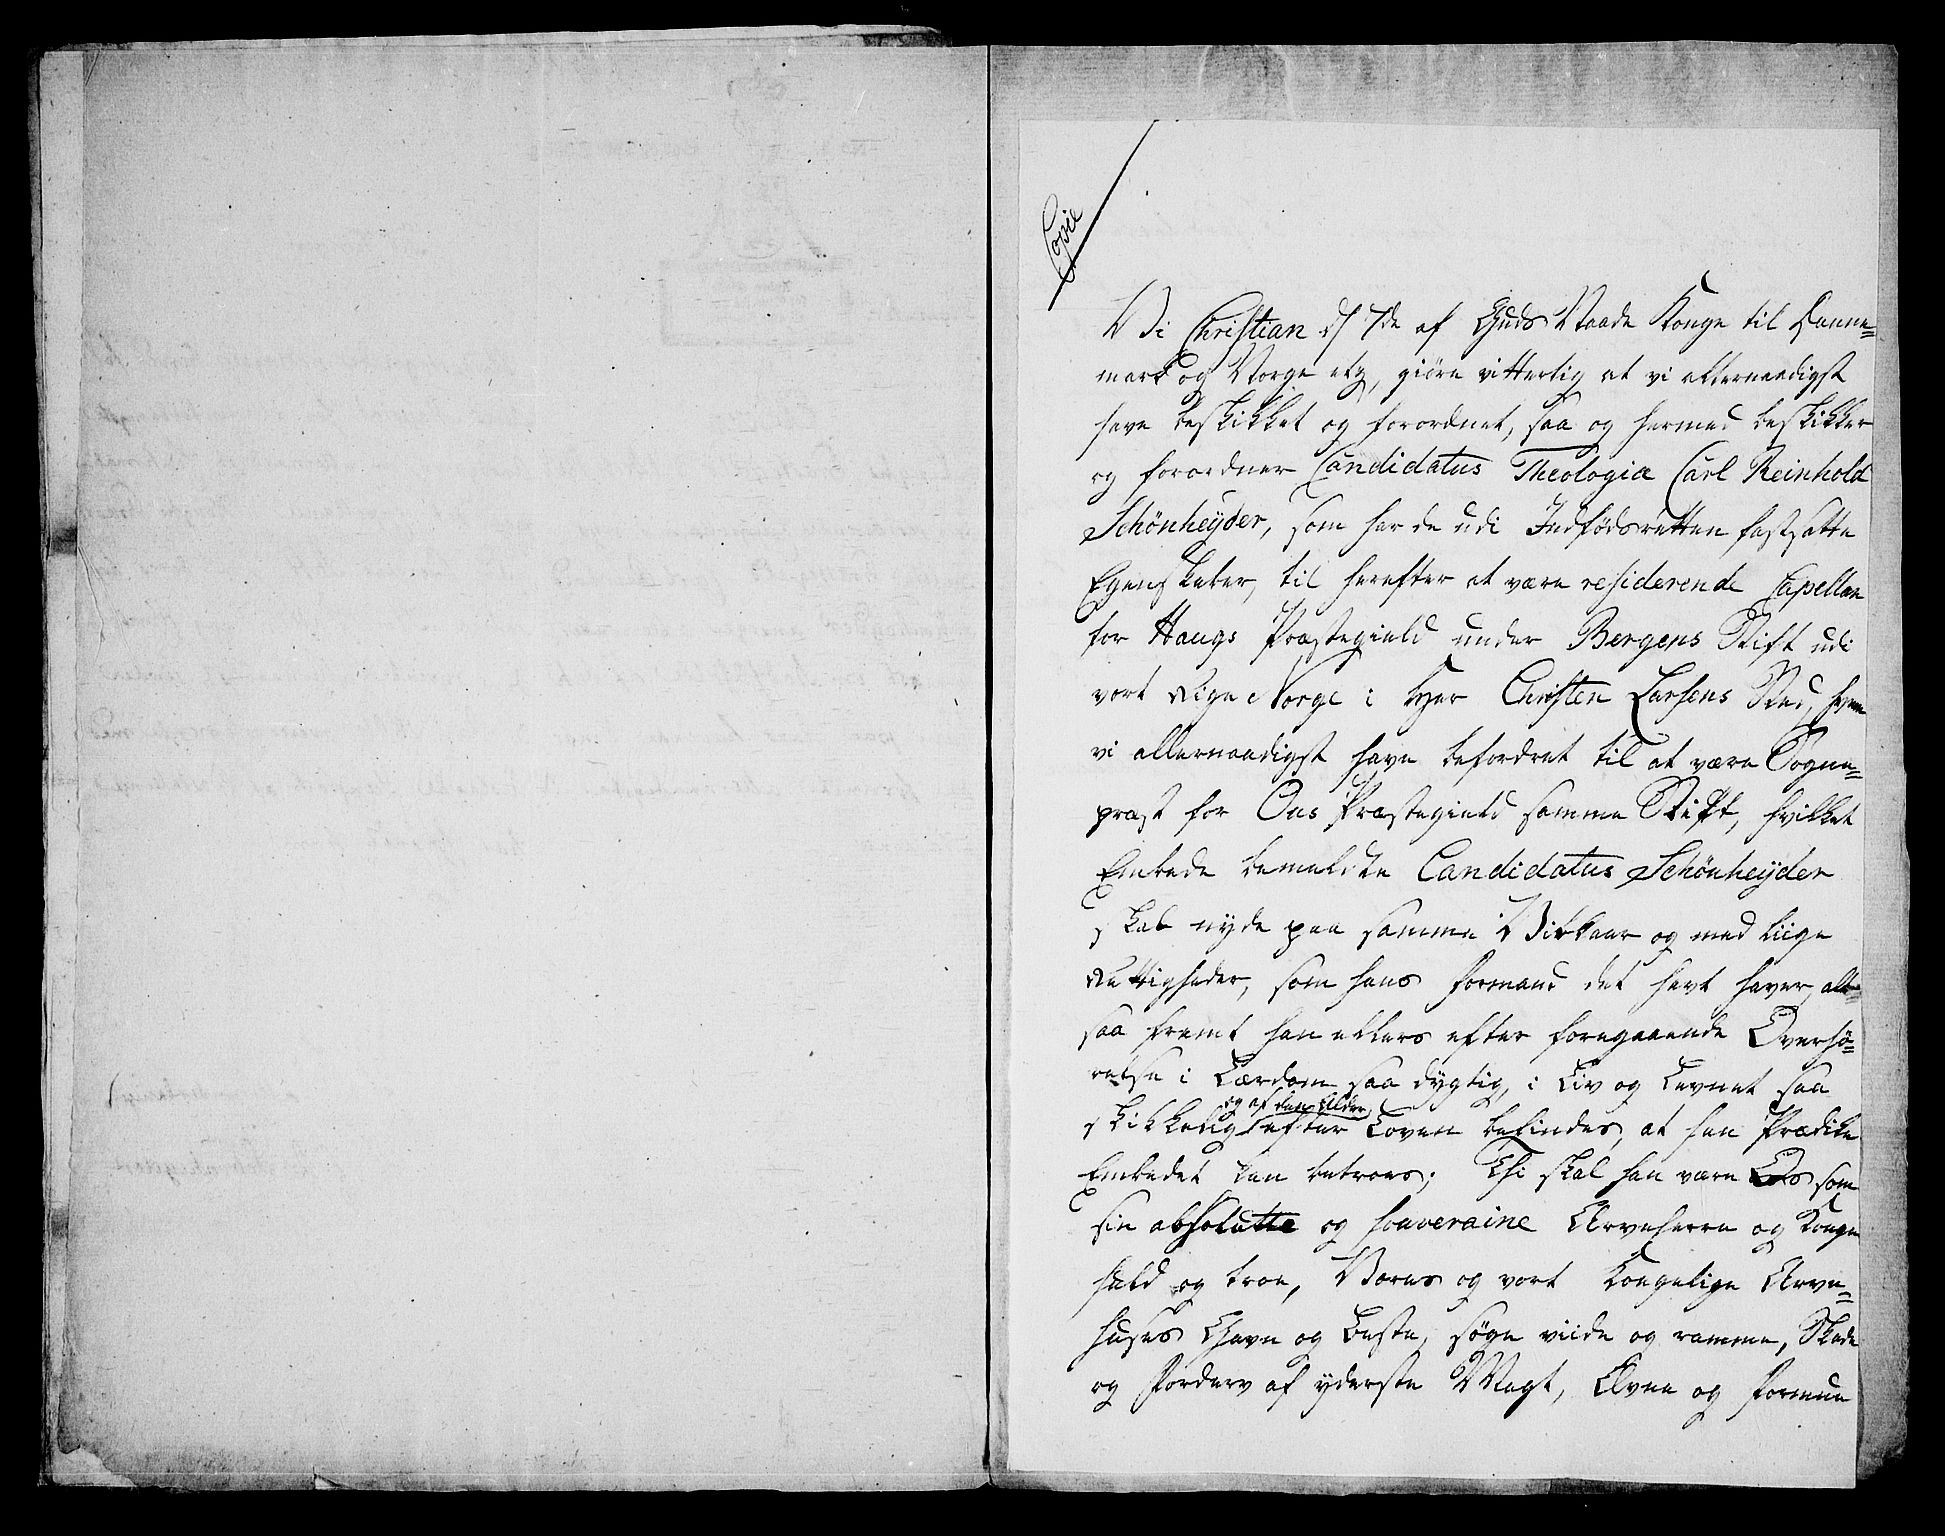 Copie
Vi Christian d 7de af Guds Naade Konge til Danne=
mark og Norge etc, giöre vitterlig at vi allernaadigst
have beskikket og forordnet, saa og hermed beskikker
og forordner Candidatus Theologiæ Carl Reinhold
Schönheÿder, som har de udi Indfödsretten fastsatte
Egenskaber, til herefter at være residerende Capellan
for Haugs Præstegield under Bergens Stift udi
vort Rige Norge i Her Christen Larsens Sted, hvem
vi allernaadigst have befordret til at være Sogne=
præst for Ous Præstegield samme Stift, hvilket
Embede bemeldte Candidatus Schönheÿder
skal nyde paa samme Vilkaar og med liige
Rettigheder, som hans Formand det havt haver, alt=
saa fremt han ellers efter foregaaende Overhö=
relse i Lærdom saa dygtig, i Liv og Levnet saa
og af den Alder
skikkelig efter Loven befindes, at han Prædike
Embedet kan betroes; Thi skal han være Os som
sin absolutte og souveraine Arveherre og Konge
huld og troe, Vores og vort Kongelige Arve=
Huses Gavn og Beste, söge viide og ramme, Skade
og Forderv af yderste Magt, Ævne og Formue